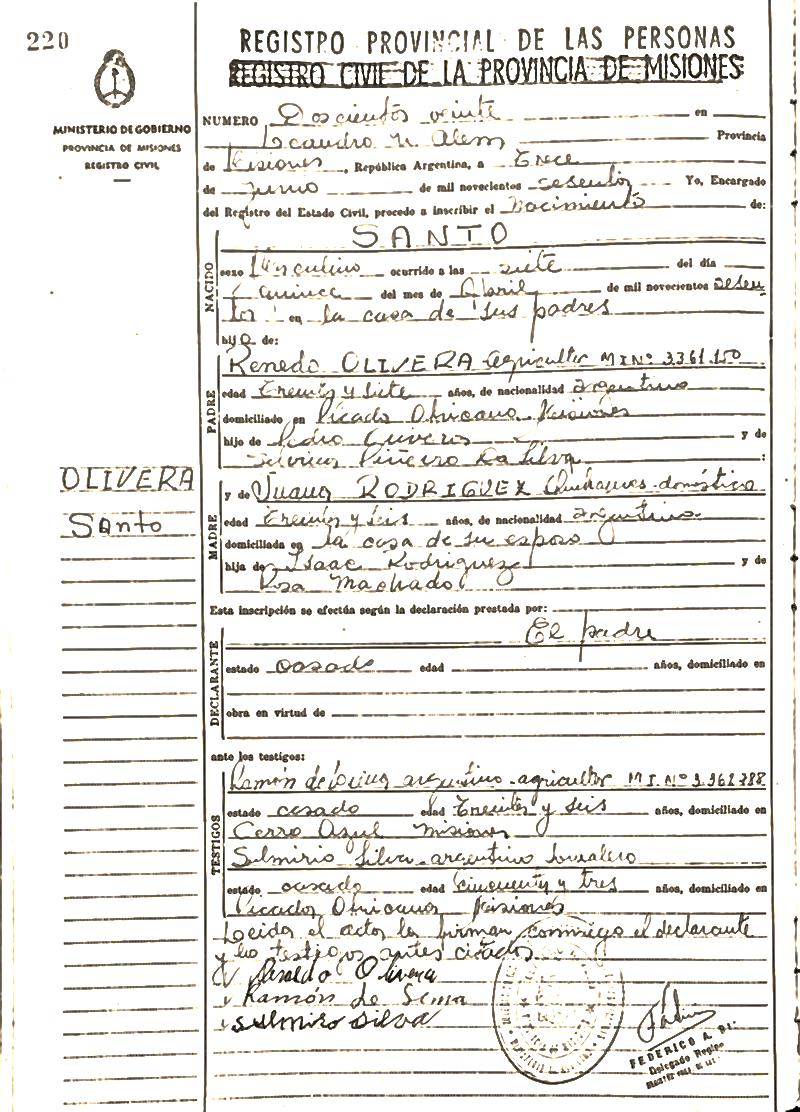 220
REGISTRO PROVINCIAL DE LAS PERSONAS
REGISTRO CIVIL DE LA PROVINCIA DE MISIONES
MINISTERIO DE GOBIERNO
PROVINCIA DE MISIONES
REGISTRO CIVIL
NUMERO Doscientos veinte en
Leandro N. Alem Provincia
de Misiones, República Argentina, a trece
de Junio de mil novecientos sesenta Yo, Encargado
del Registro del Estado Civil, procedo a inscribir el Nacimiento de:
SANTO
NACIDO
sexo Masculino ocurrido a las siete del día
quince del mes de Abril de mil novecientos sesen
ta en la casa de sus padres
hijo de:
PADRE
OLIVERA agricultor M I Nº 3361.150
edad treinta y siete años, de nacionalidad argentino
domiciliado en Picada Misiones
hijo de Pedro y de
Piñeiro Da Silva :
OLIVERA
Santo
MADRE
y de Juana RODRIGUEZ doméstica
edad treinta y seis años, de nacionalidad argentina
domiciliada en la casa de su esposo
hija de Isaac Rodriguez y de
Rosa Machado
Esta inscripción se efectúa según la declaración prestada por:
El padre
DECLARANTE
estado casado edad años, domiciliado en
obra en virtud de
ante los testigos:
TESTIGOS
Ramón de argentino agricultor M.I. Nº
estado casado edad treinta y seis años, domiciliado en
Cerro Azul Misiones
Silmirio Silva argentino jornalero
estado casado edad cincuenta y tres años, domiciliado en
Picada Misiones
Leida el acta la firman conmigo el declarante
y los testigos antes citados
Olivera
Ramón de
Silmiro Silva
FEDERICO A.
Delegado